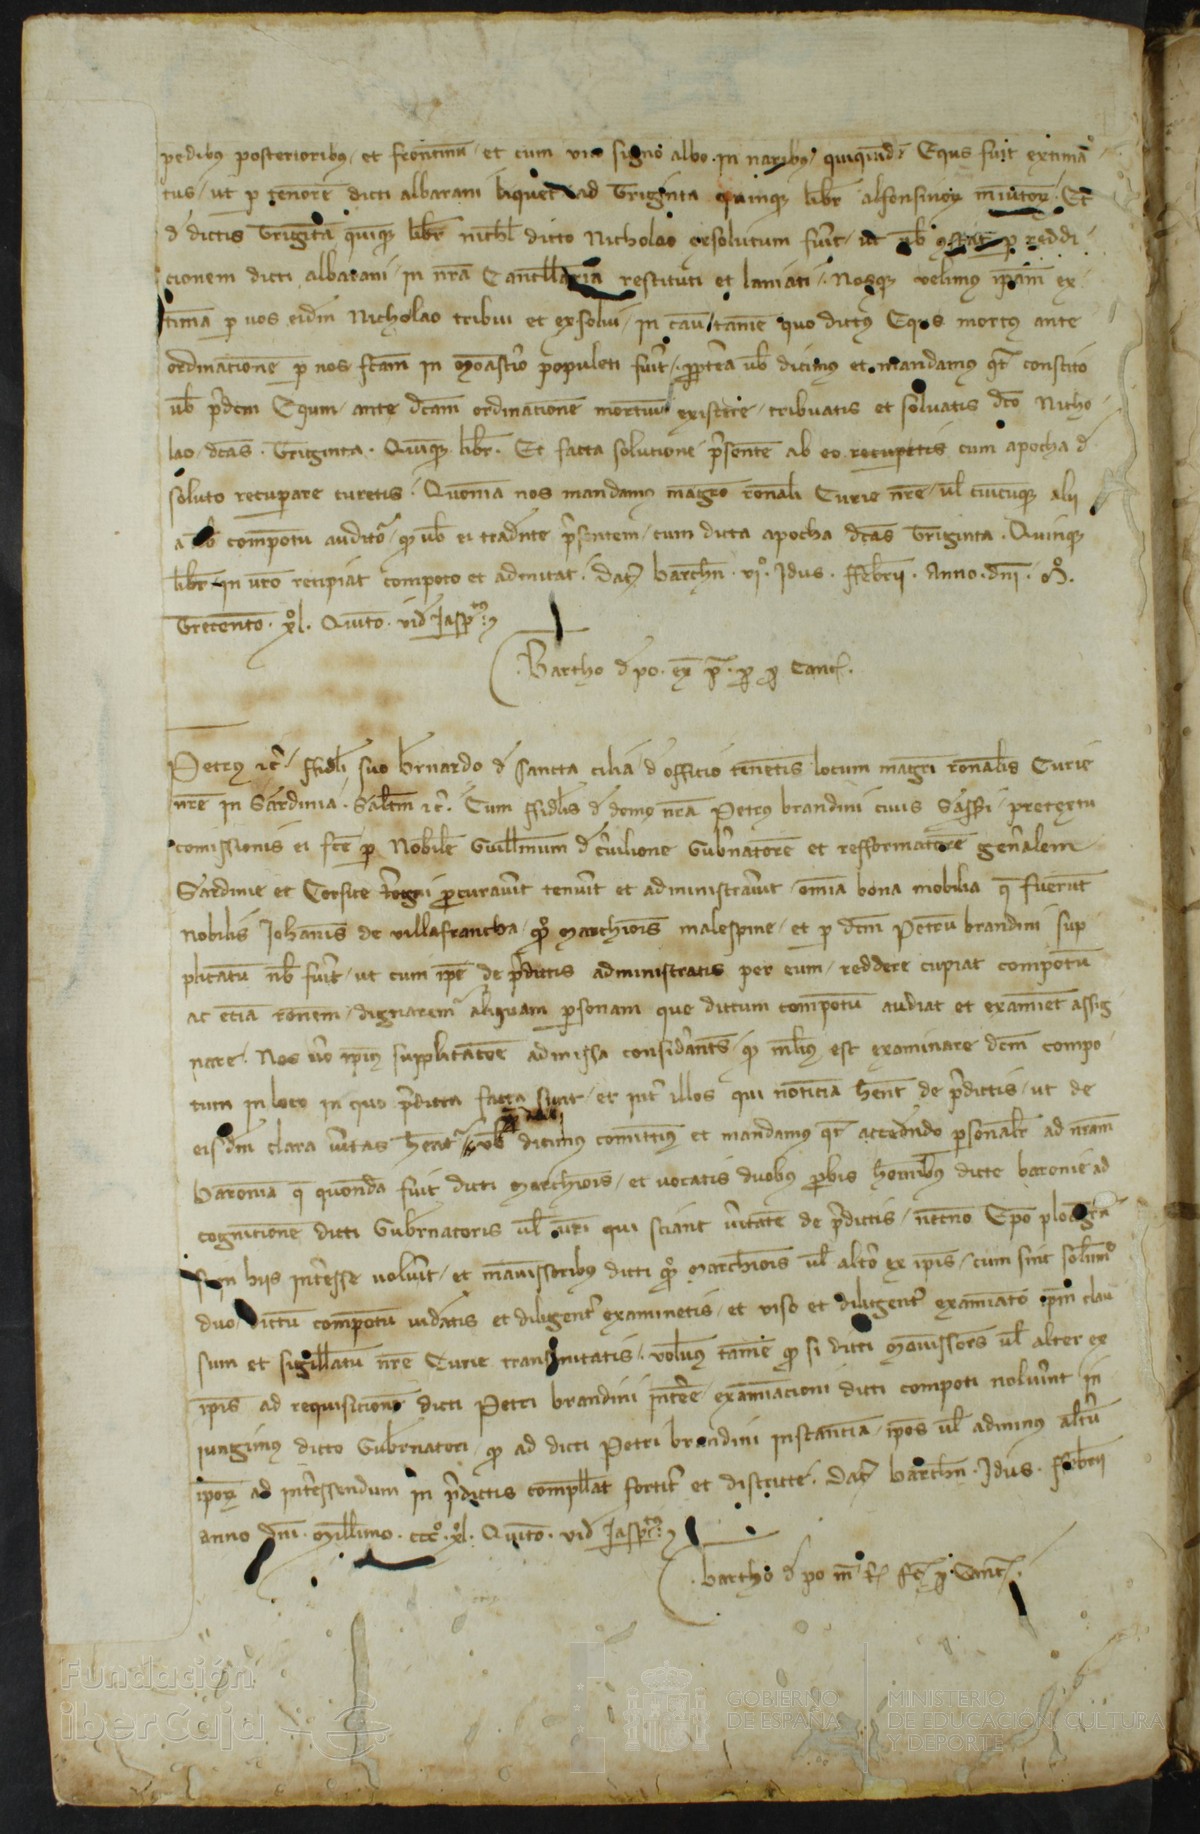 pedibus posterioribus / et frontinū / et cum vno signo albo in naribus / quiquid Equs fuit extima
tus / ut p tenorē dicti albarani liquet ad Triginta quinque libr alfonsinor minutor. Et
d dictis Triginta quinque libr nichil dicto Nicholao exsolutum fuit / ut nb p reddi
cionem dicti albarani / in nrā Cancllaria restituti et laniati / Nosque velimus ipām ex
timā p vos eidm Nicholao tribui et exsolui / in cau tamē quo dictus Equs mortus ante
ordinationē p nos fcam in monastio populeti fuit / ppterea ub dicimus et mandamus qt constito
ub pdcm Equm / ante dcam ordinationē mortuū existere / tribuatis et solvatis dco Nicho
lao dcas Triginta Quinque libr. Et facta solutione psentē ab eo recupetis cum apocha d
soluto recuperare curetis. Quoniā nos mandamus magro ronali Curie nre / ul cuicumque alii
a ub compotū auditor / qp ub ei tradnte psentem / cum dicta apocha dcas Triginta Quinque
libr in uro recipiat compoto et admitat. Dat barchn vi.º Idus ffebrii Anno dni Mº.
Trecento xl Quito vid Jasptus
Bartho d po ex p p Canc.
Petrus etc / ffidli suo bernardo d sancta cilia d officio tenētis locum magri ronalis Curie
nre in Sardinia Saltm etc. Cum ffidlis d domo nrā Petrus brandini civis Sasseri / pretextu
comissionis ei fce p Nobilē Guillmum d cruilione Gubnatorē et refformatorē genralem
Sardinie et Corsice Regni procuravit tenuit et administravit / omia bona mobilia q fuerūt
nobilis Johanis de villafrancha / qo marchiois malespine / et p dcm Petrū brandini sup
plicatū nb fuit / ut cum ipe de pdictis administratis per eum / reddere cupiat compotū
ac etiā ronem / dignarem aliquam psonam que dictum compotū audiat et examiet assig
nare. Nos uo ipius supplicatōe admissa considrants / qp mlius est examinare dcm compo
tum in loco in quo pdicta facta sunt / et int illos qui noticiā hent de pdictis / ut de
eisdm clara vitas heat / ub dicimus comittimus et mandamus qt accedendo psonalr ad nram
baroniā q quondā fuit dicti marchiois / et vocatis duobus pbis homibus dicte baronie ad
cognitionē dicti Gubrnatoris ul uri qui sciant vitatē de pdictis / necno Epo
si in hiis interesse voluit / et manissoribus dicti qo marchiois ul altero ex ipis / cum sint solum
duo dictū compotū vidatis et diligent examinetis / et viso et diligent examiato ipm clau
sum et sigillatū nre Curie transmitatis. Volumus tamē qp si dicti manissors ul alter ex
ipis ad requisicionē dicti Petri brandini intere examiacioni dicti compoti noluint in
iungimus dicto Gubrnatori / qp ad dicti Petri brandini instantiā ipos ul adminus altrū
ipor ad intessendum in pdictis compllat fortit et districte. Dat barchn Idus ffebrii
anno dni Millmo cccº xl Quito vid Jasptus
bartho d po m R fc p Canc.